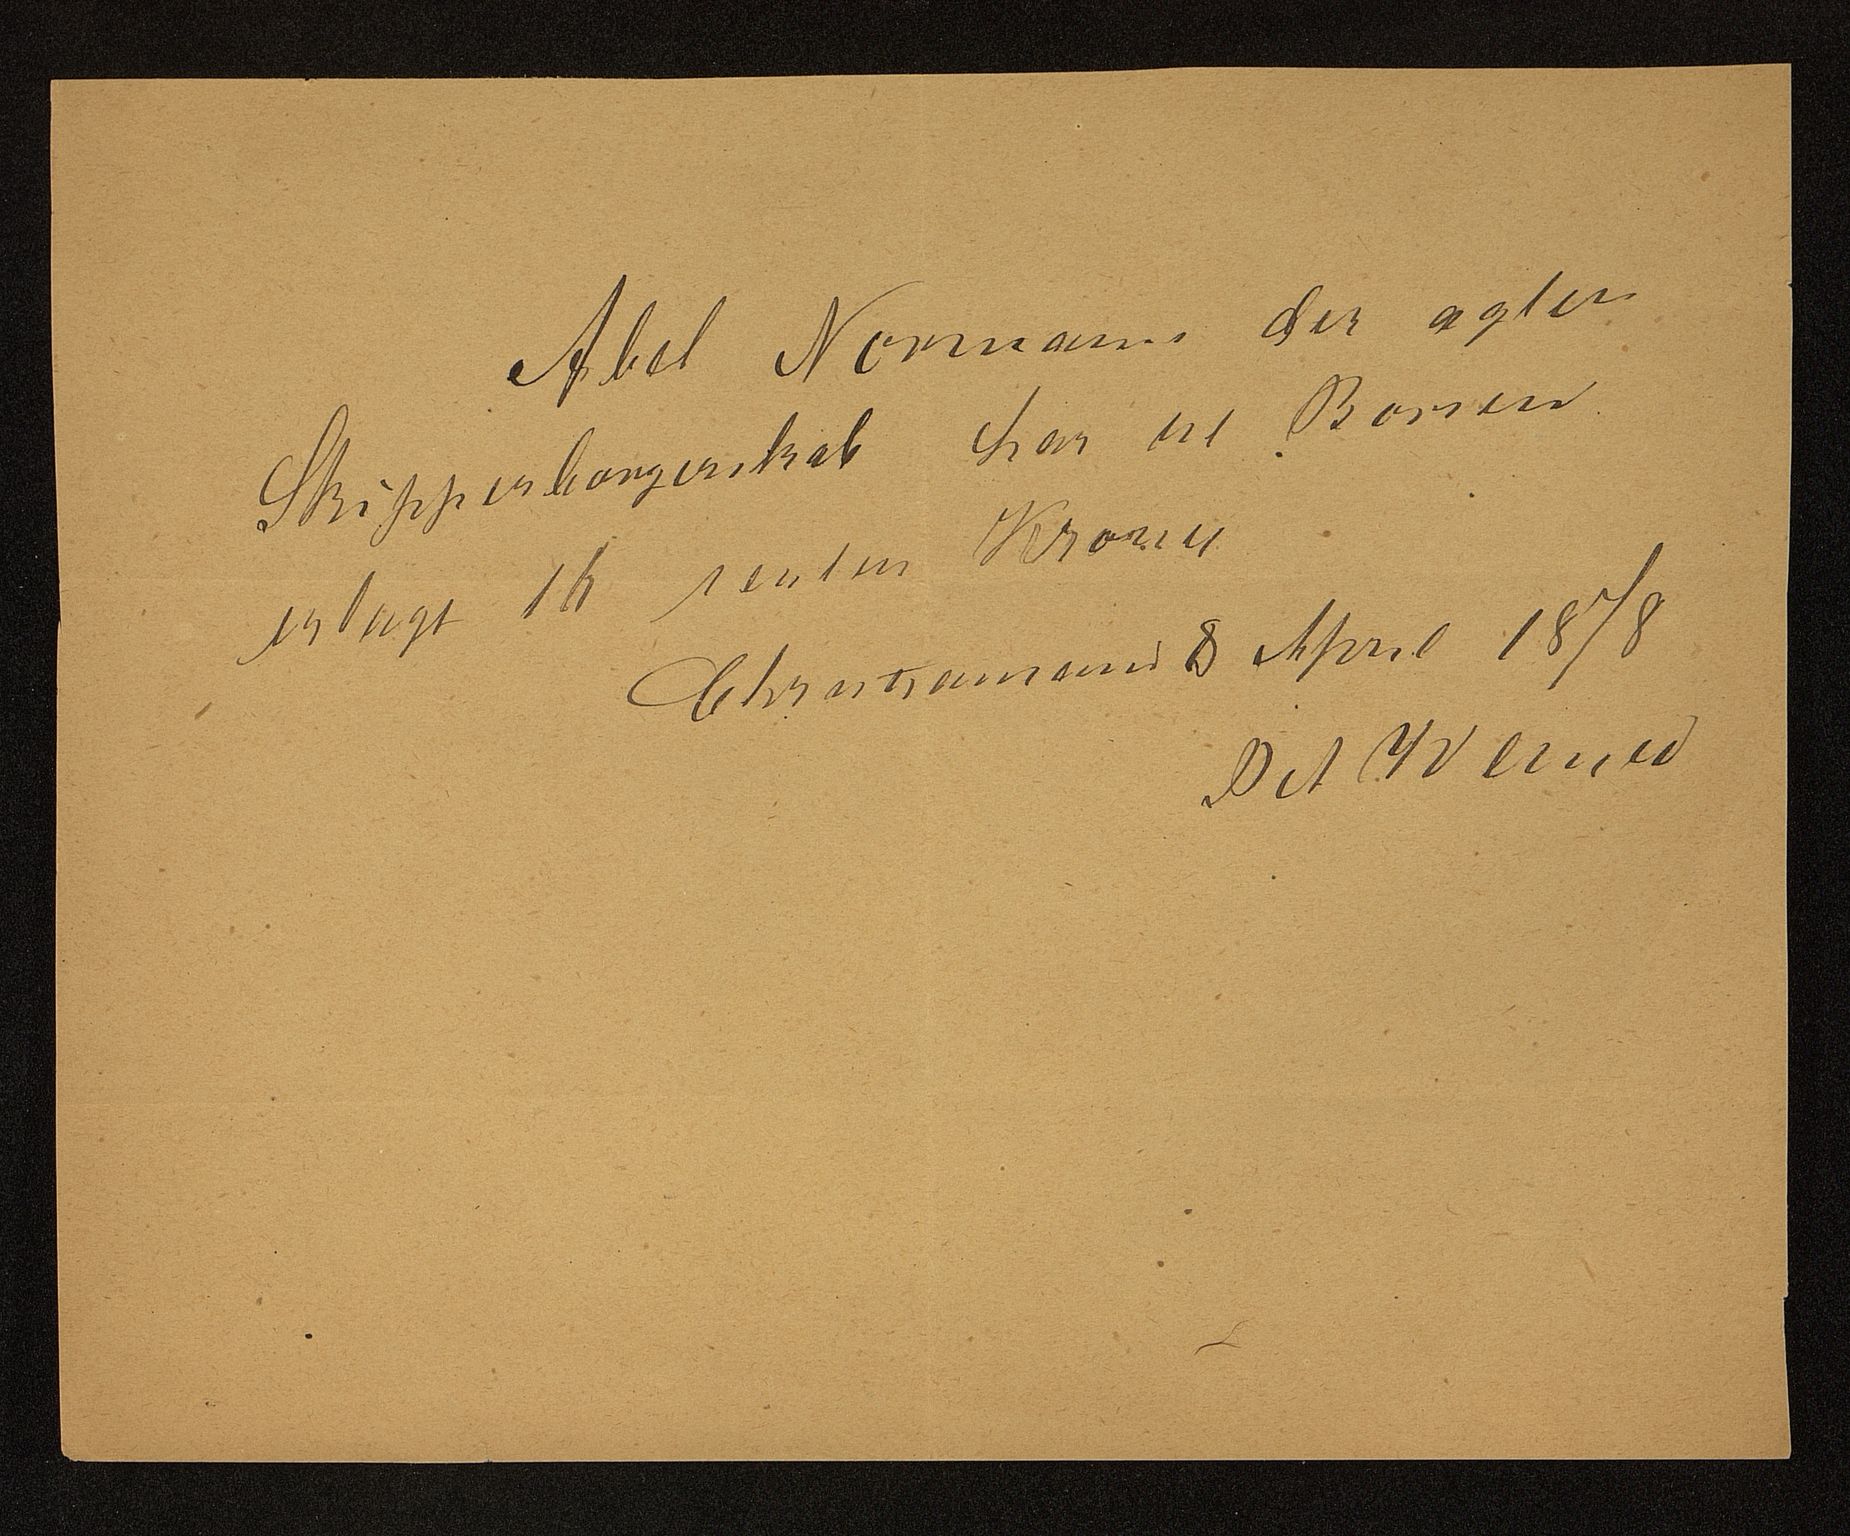 Abel Normann der agter
Skipperborgerskab har til Børsen
erlagt 16 sexten Kroner
Christianssand 8 April 1878